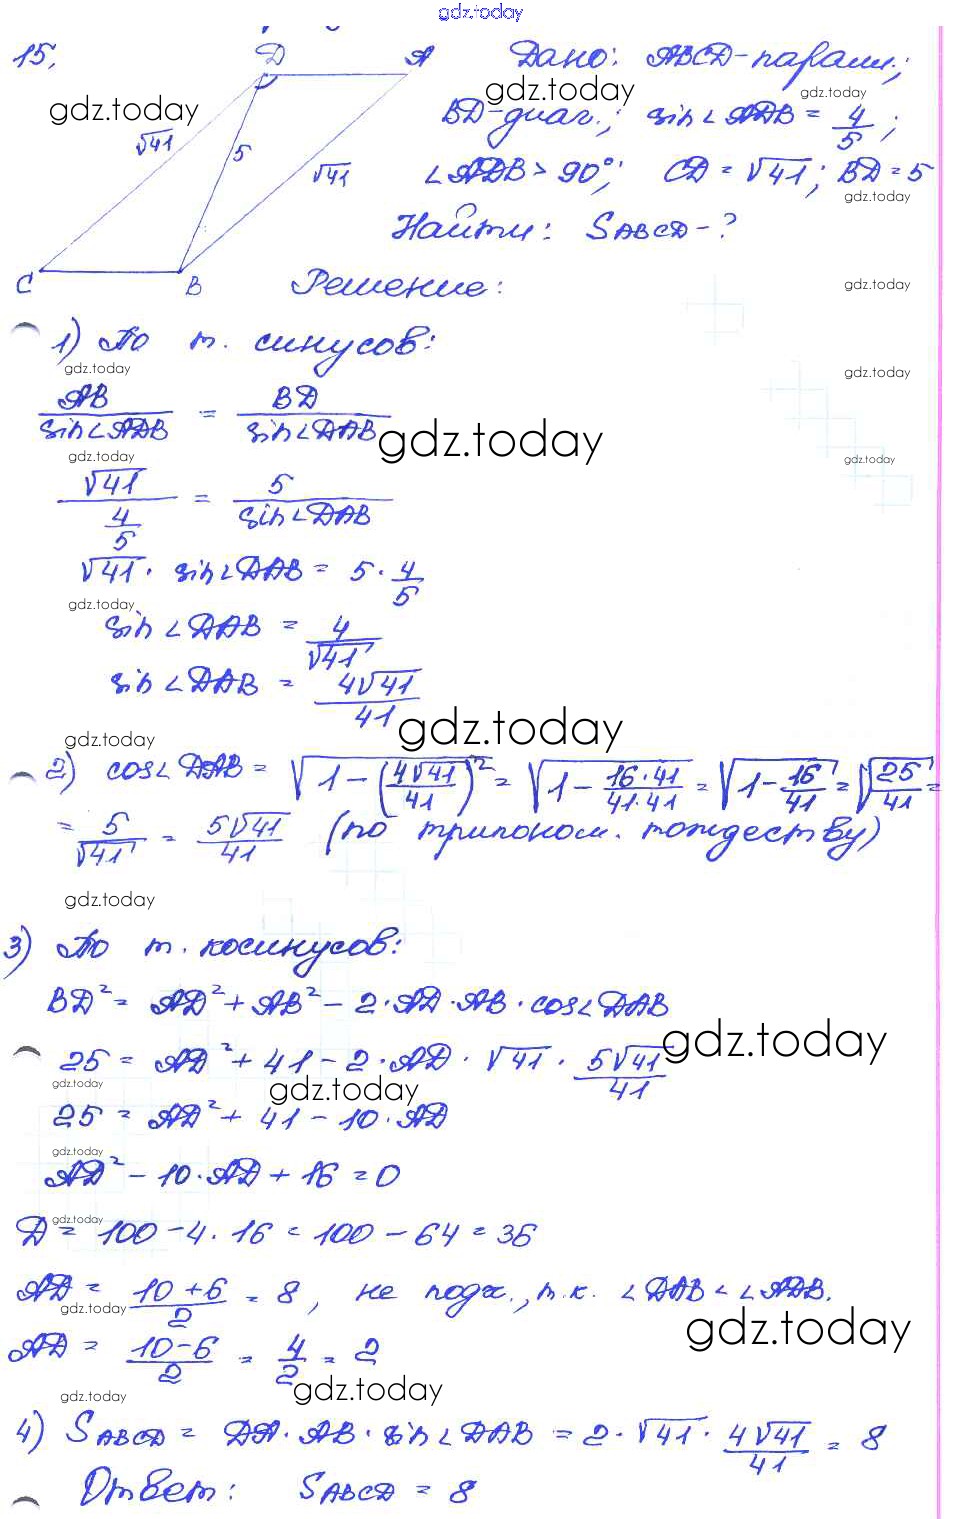 gdz.today
15.
D A
√41 5 √41
C B
Дано: ABCD-парал.;
BD-диаг.; sin∠ADB = 4/5;
∠ADB > 90°; CD = √41; BD = 5
Найти: SABCD - ?
Решение:
1) По т. синусов:
AB/sin∠ADB = BD/sin∠DAB
√41/(4/5) = 5/sin∠DAB
√41 · sin∠DAB = 5 · 4/5
sin∠DAB = 4/√41
sin∠DAB = 4√41/41
2) cos∠DAB = √(1 - (4√41/41)²) = √(1 - 16·41/41·41) = √(1 - 16/41) = √(25/41) =
= 5/√41 = 5√41/41 (по тригоном. тождеству)
3) По т. косинусов:
BD² = AD² + AB² - 2·AD·AB·cos∠DAB
25 = AD² + 41 - 2·AD·√41·5√41/41
25 = AD² + 41 - 10·AD
AD² - 10·AD + 16 = 0
D = 100 - 4·16 = 100 - 64 = 36
AD = (10 + 6)/2 = 8, не подх., т.к. ∠DAB < ∠ADB.
AD = (10 - 6)/2 = 4/2 = 2
4) SABCD = DA·AB·sin∠DAB = 2·√41·4√41/41 = 8
Ответ: SABCD = 8